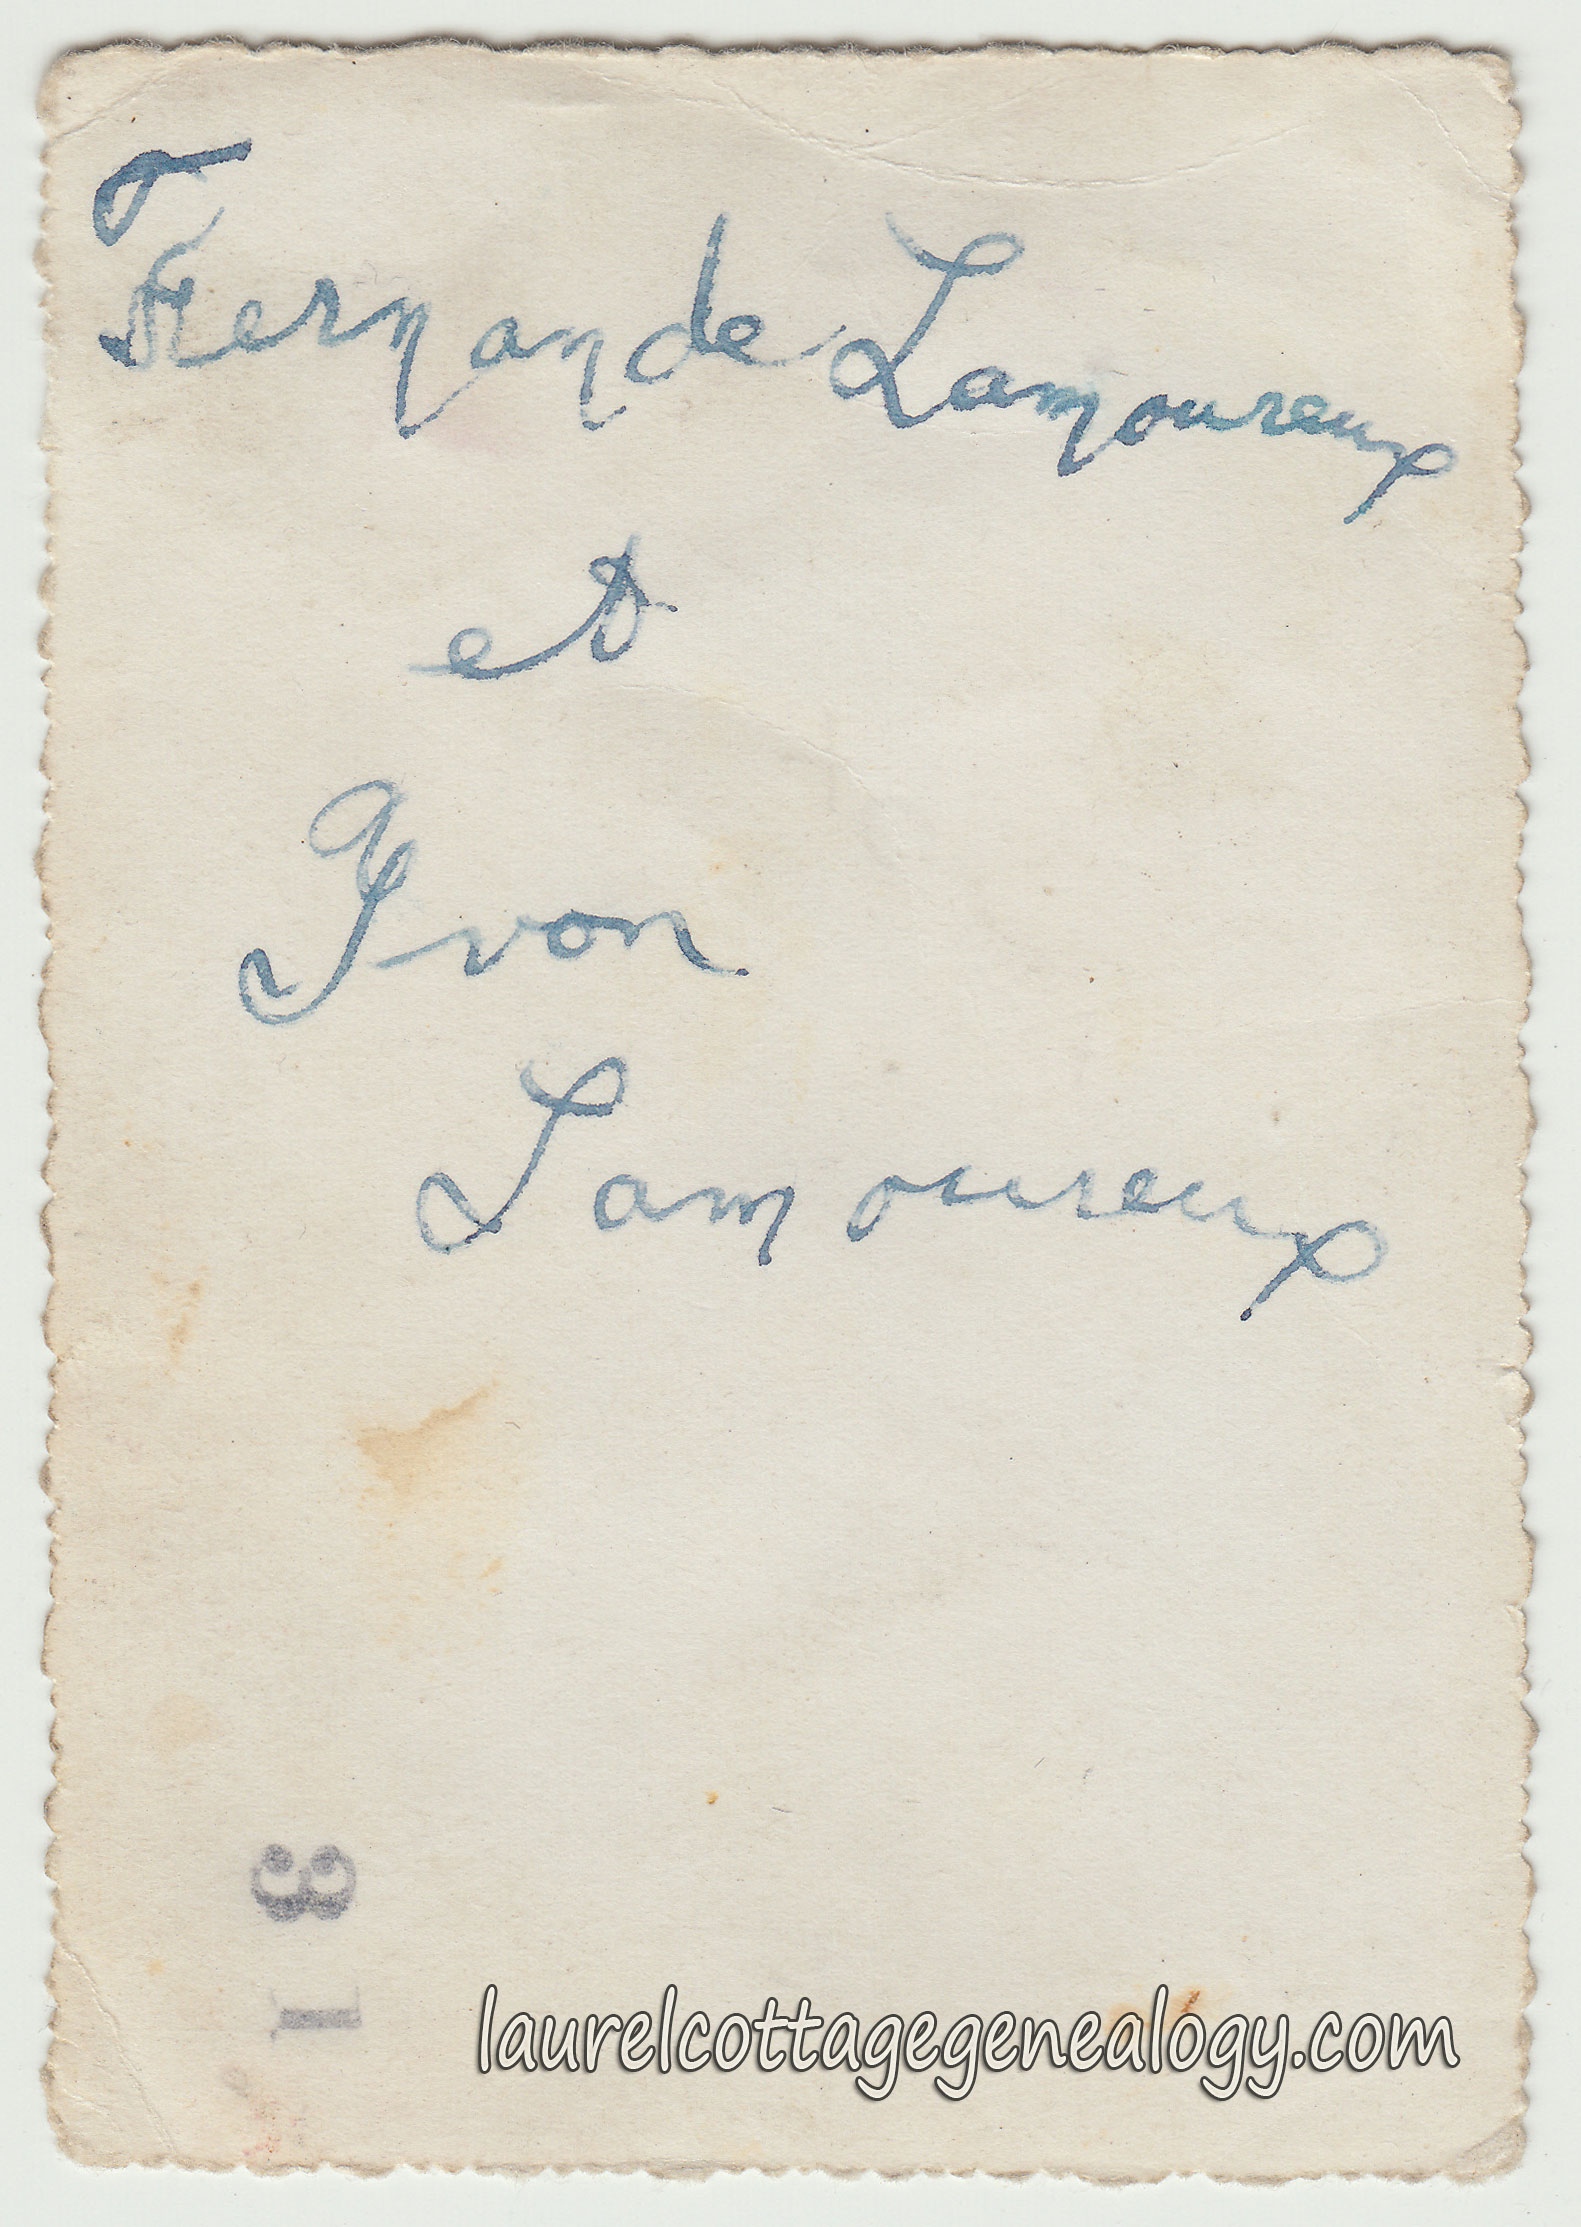 Fernande Lamoureux
et
Yvon
Lamoureux
13
laurelcottagegenealogy.com